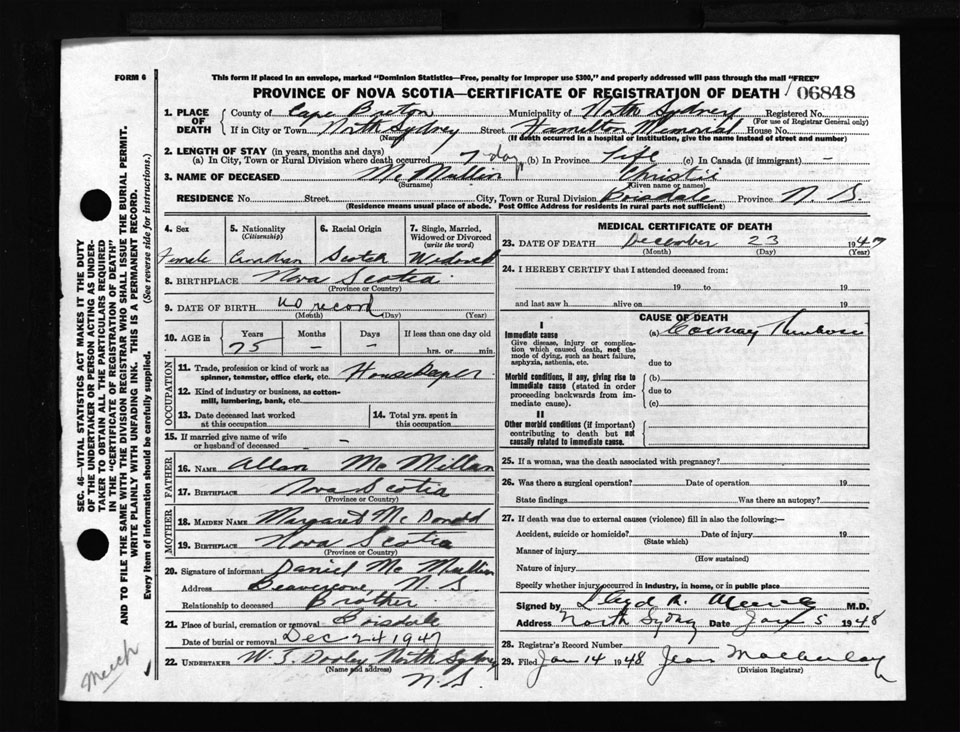 FORM 6
This form if placed in an envelope, marked "Dominion Statistics—Free, penalty for improper use $300," and properly addressed will pass through the mail "FREE"
PROVINCE OF NOVA SCOTIA—CERTIFICATE OF REGISTRATION OF DEATH 06848
1. PLACE OF DEATH
County of Cape Breton Municipality of North Sydney Registered No.
(For use of Registrar General only)
If in City or Town North Sydney Street Hamilton Memorial House No.
(Name) (If death occurred in a hospital or institution, give the name instead of street and number)
2. LENGTH OF STAY (in years, months and days)
(a) In City, Town or Rural Division where death occurred 7 days (b) In Province Life (c) In Canada (if immigrant) -
3. NAME OF DECEASED Mc Mullin Christie
(Surname) (Given name or names)
RESIDENCE No. Street City, Town or Rural Division Boisdale Province N. S.
(Residence means usual place of abode. Post Office Address for residents in rural parts not sufficient)
4. Sex 5. Nationality (Citizenship) 6. Racial Origin 7. Single, Married, Widowed or Divorced (write the word)
Female Canadian Scotch Widowed
8. BIRTHPLACE Nova Scotia
(Province or Country)
9. DATE OF BIRTH no record
(Month) (Day) (Year)
10. AGE in Years Months Days If less than one day old
75 - - hrs. or min.
OCCUPATION
11. Trade, profession or kind of work as spinner, teamster, office clerk, etc. Housekeeper
12. Kind of industry or business, as cotton-mill, lumbering, bank, etc.
13. Date deceased last worked at this occupation 14. Total yrs. spent in this occupation
15. If married give name of wife or husband of deceased -
FATHER
16. NAME Allan Mc Millan
17. BIRTHPLACE Nova Scotia
(Province or Country)
MOTHER
18. MAIDEN NAME Margaret McDonald
19. BIRTHPLACE Nova Scotia
(Province or Country)
20. Signature of informant Daniel Mc Mullin
Address Beavercove, N. S.
Relationship to deceased Brother
21. Place of burial, cremation or removal Boisdale
Date of burial or removal Dec 24 1947
22. UNDERTAKER W. J. Dooley North Sydney
(Name and address)
N. S.
MEDICAL CERTIFICATE OF DEATH
23. DATE OF DEATH December 23 1947
(Month) (Day) (Year)
24. I HEREBY CERTIFY that I attended deceased from:
19 to 19
and last saw h alive on 19
CAUSE OF DEATH
I
Immediate cause (a) Coronary Thrombosis
Give disease, injury or complication which caused death, not the mode of dying, such as heart failure, asphyxia, asthenia, etc.
due to
Morbid conditions, if any, giving rise to immediate cause (stated in order proceeding backwards from immediate cause).
(b)
due to
(c)
II
Other morbid conditions (if important) contributing to death but not causally related to immediate cause.
25. If a woman, was the death associated with pregnancy?
26. Was there a surgical operation? Date of operation 19
State findings Was there an autopsy?
27. If death was due to external causes (violence) fill in also the following:—
Accident, suicide or homicide? Date of injury 19
(State which)
Manner of injury
(How sustained)
Nature of injury
Specify whether injury occurred in industry, in home, or in public place
Signed by Lloyd R. M.D.
Address North Sydney Date Jan 5 1948
28. Registrar's Record Number
29. Filed Jan 14 1948 Jean
(Division Registrar)
SEC. 46—VITAL STATISTICS ACT MAKES IT THE DUTY
OF THE UNDERTAKER OR PERSON ACTING AS UNDER-
TAKER TO OBTAIN ALL THE PARTICULARS REQUIRED
IN THE "CERTIFICATE OF REGISTRATION OF DEATH"
AND TO FILE THE SAME WITH THE DIVISION REGISTRAR WHO SHALL ISSUE THE BURIAL PERMIT.
WRITE PLAINLY WITH UNFADING INK. THIS IS A PERMANENT RECORD.
Every item of information should be carefully supplied. (See reverse side for instructions.)